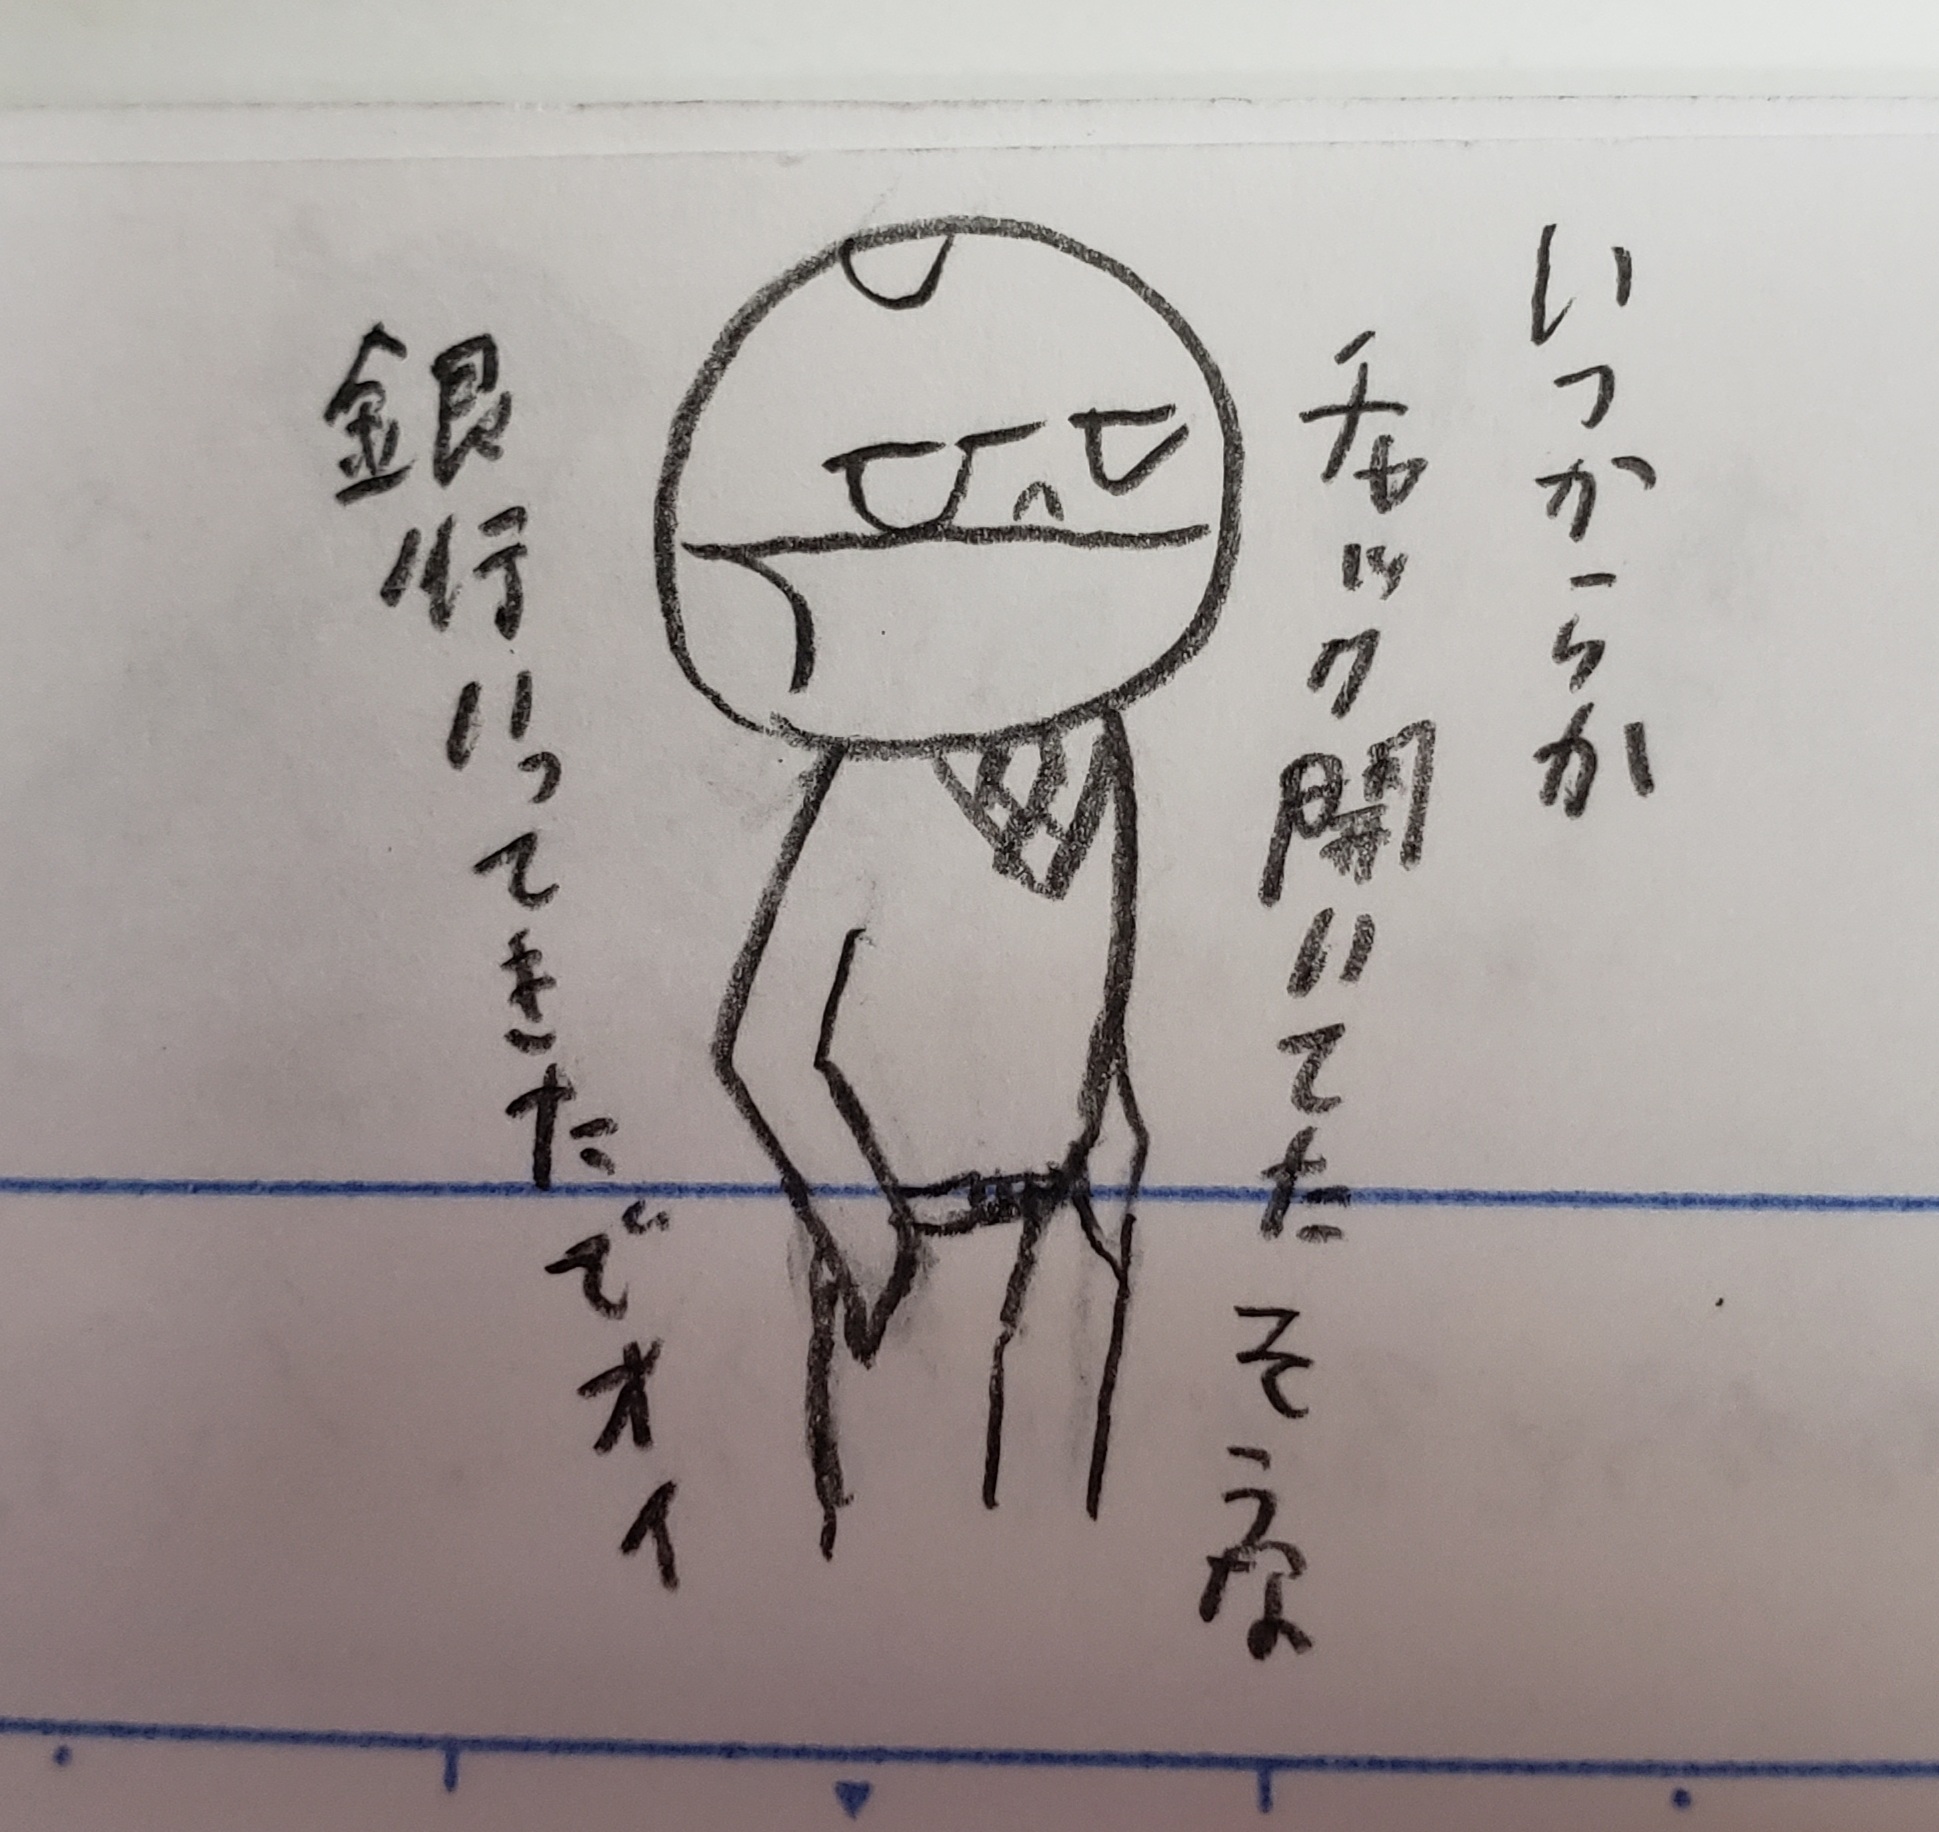 いつからか
チャック開いてたそうな
銀行いってきただでオイ